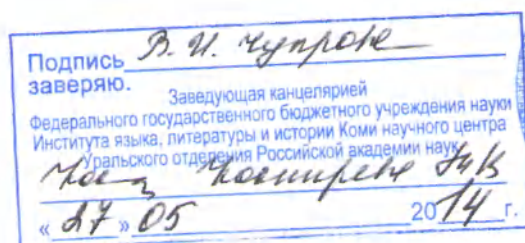 Подпись В. И. Чупрова
заверяю.
Заведующая канцелярией
Федерального государственного бюджетного учреждения науки
Института языка, литературы и истории Коми научного центра
Уральского отделения Российской академии наук
« 27 » 05 2014 г.